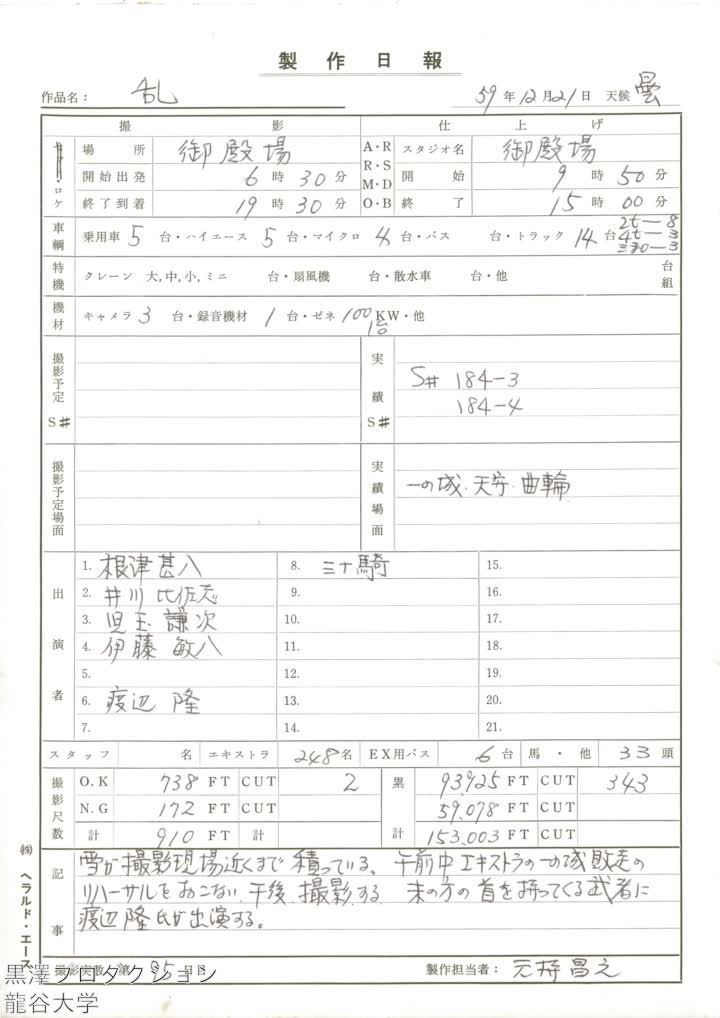 製作日報
作品名： 乱 59年12月21日 天候 曇
撮影 仕上げ
ロケ 場所 御殿場 A・R スタジオ名 御殿場
開始出発 6時30分 R・S 開始 9時50分
M・D
終了到着 19時30分 O・B 終了 15時00分
車輌 乗用車 5台・ハイエース 5台・マイクロ 4台・バス 台・トラック 14台 2t―8
4t―3
特機 クレーン 大,中,小,ミニ 台・扇風機 台・散水車 台・他 台組
機材 キャメラ 3台・録音機材 1台・ゼネ 100KW・他
1台
撮影予定 S# 実績 S# S# 184-3
184-4
撮影予定場面 実績場面 一の城・天守・曲輪
出演者
1. 根津甚八 8. 三十騎 15.
2. 井川比佐志 9. 16.
3. 児玉謙次 10. 17.
4. 伊藤敏八 11. 18.
5. 12. 19.
6. 渡辺隆 13. 20.
7. 14. 21.
スタッフ 名 エキストラ 248名 EX用バス 6台 馬・他 33頭
撮影尺数 O.K 738 FT CUT 2 累計 93,925 FT CUT 343
N.G 172 FT CUT 59,078 FT CUT
計 910 FT 計 153,003 FT CUT
記事 雪が撮影現場近くまで積っている、午前中エキストラの一の城敗走の
リハーサルをおこない、午後、撮影する 末の方の首を持ってくる武者に
渡辺隆氏が出演する。
撮影実数 第 95日目 製作担当者： 元持昌之
㈱ ヘラルド・エース
黒澤プロダクション
龍谷大学